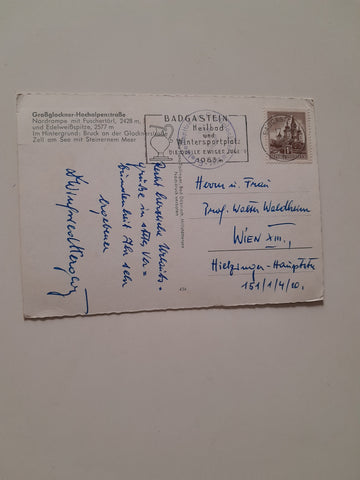 Großglockner-Hochalpenstraße
Nordrampe mit Fuschertörl, 2428 m,
und Edelweißspitze, 2577 m
Im Hintergrund: Bruck an der Glocknerstraße
Zell am See mit Steinernem Meer
BADGASTEIN
Heilbad
und
Wintersportplatz
DIE QUELLE EWIGER JUGEND
1063 m
Recht herzliche Urlaubs-
grüße in alter Ver-
bundenheit Ihr sehr
ergebener
Winfried
Herrn u. Frau
Prof. Walter Waldheim
WIEN XIII.,
Hietzinger-Hauptstr
151/1/4/20.
434